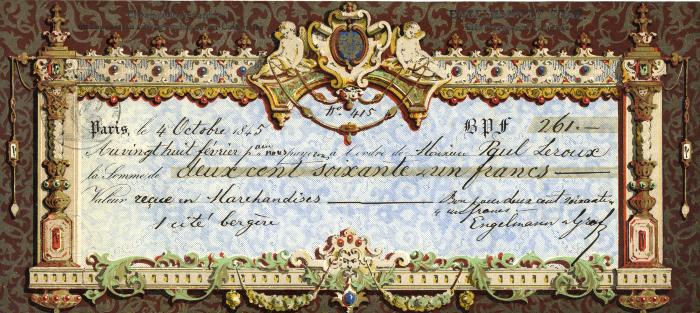 N° 415
Paris, le 4 Octobre 1845 BPF 261.—
Au vingt huit février payerons à l'ordre de Monsieur Paul Leroux
la Somme de deux cent soixante un francs
Valeur reçue en Marchandises Bon pour deux cent soixante
1 cité bergère un francs
Engelmann & Graf